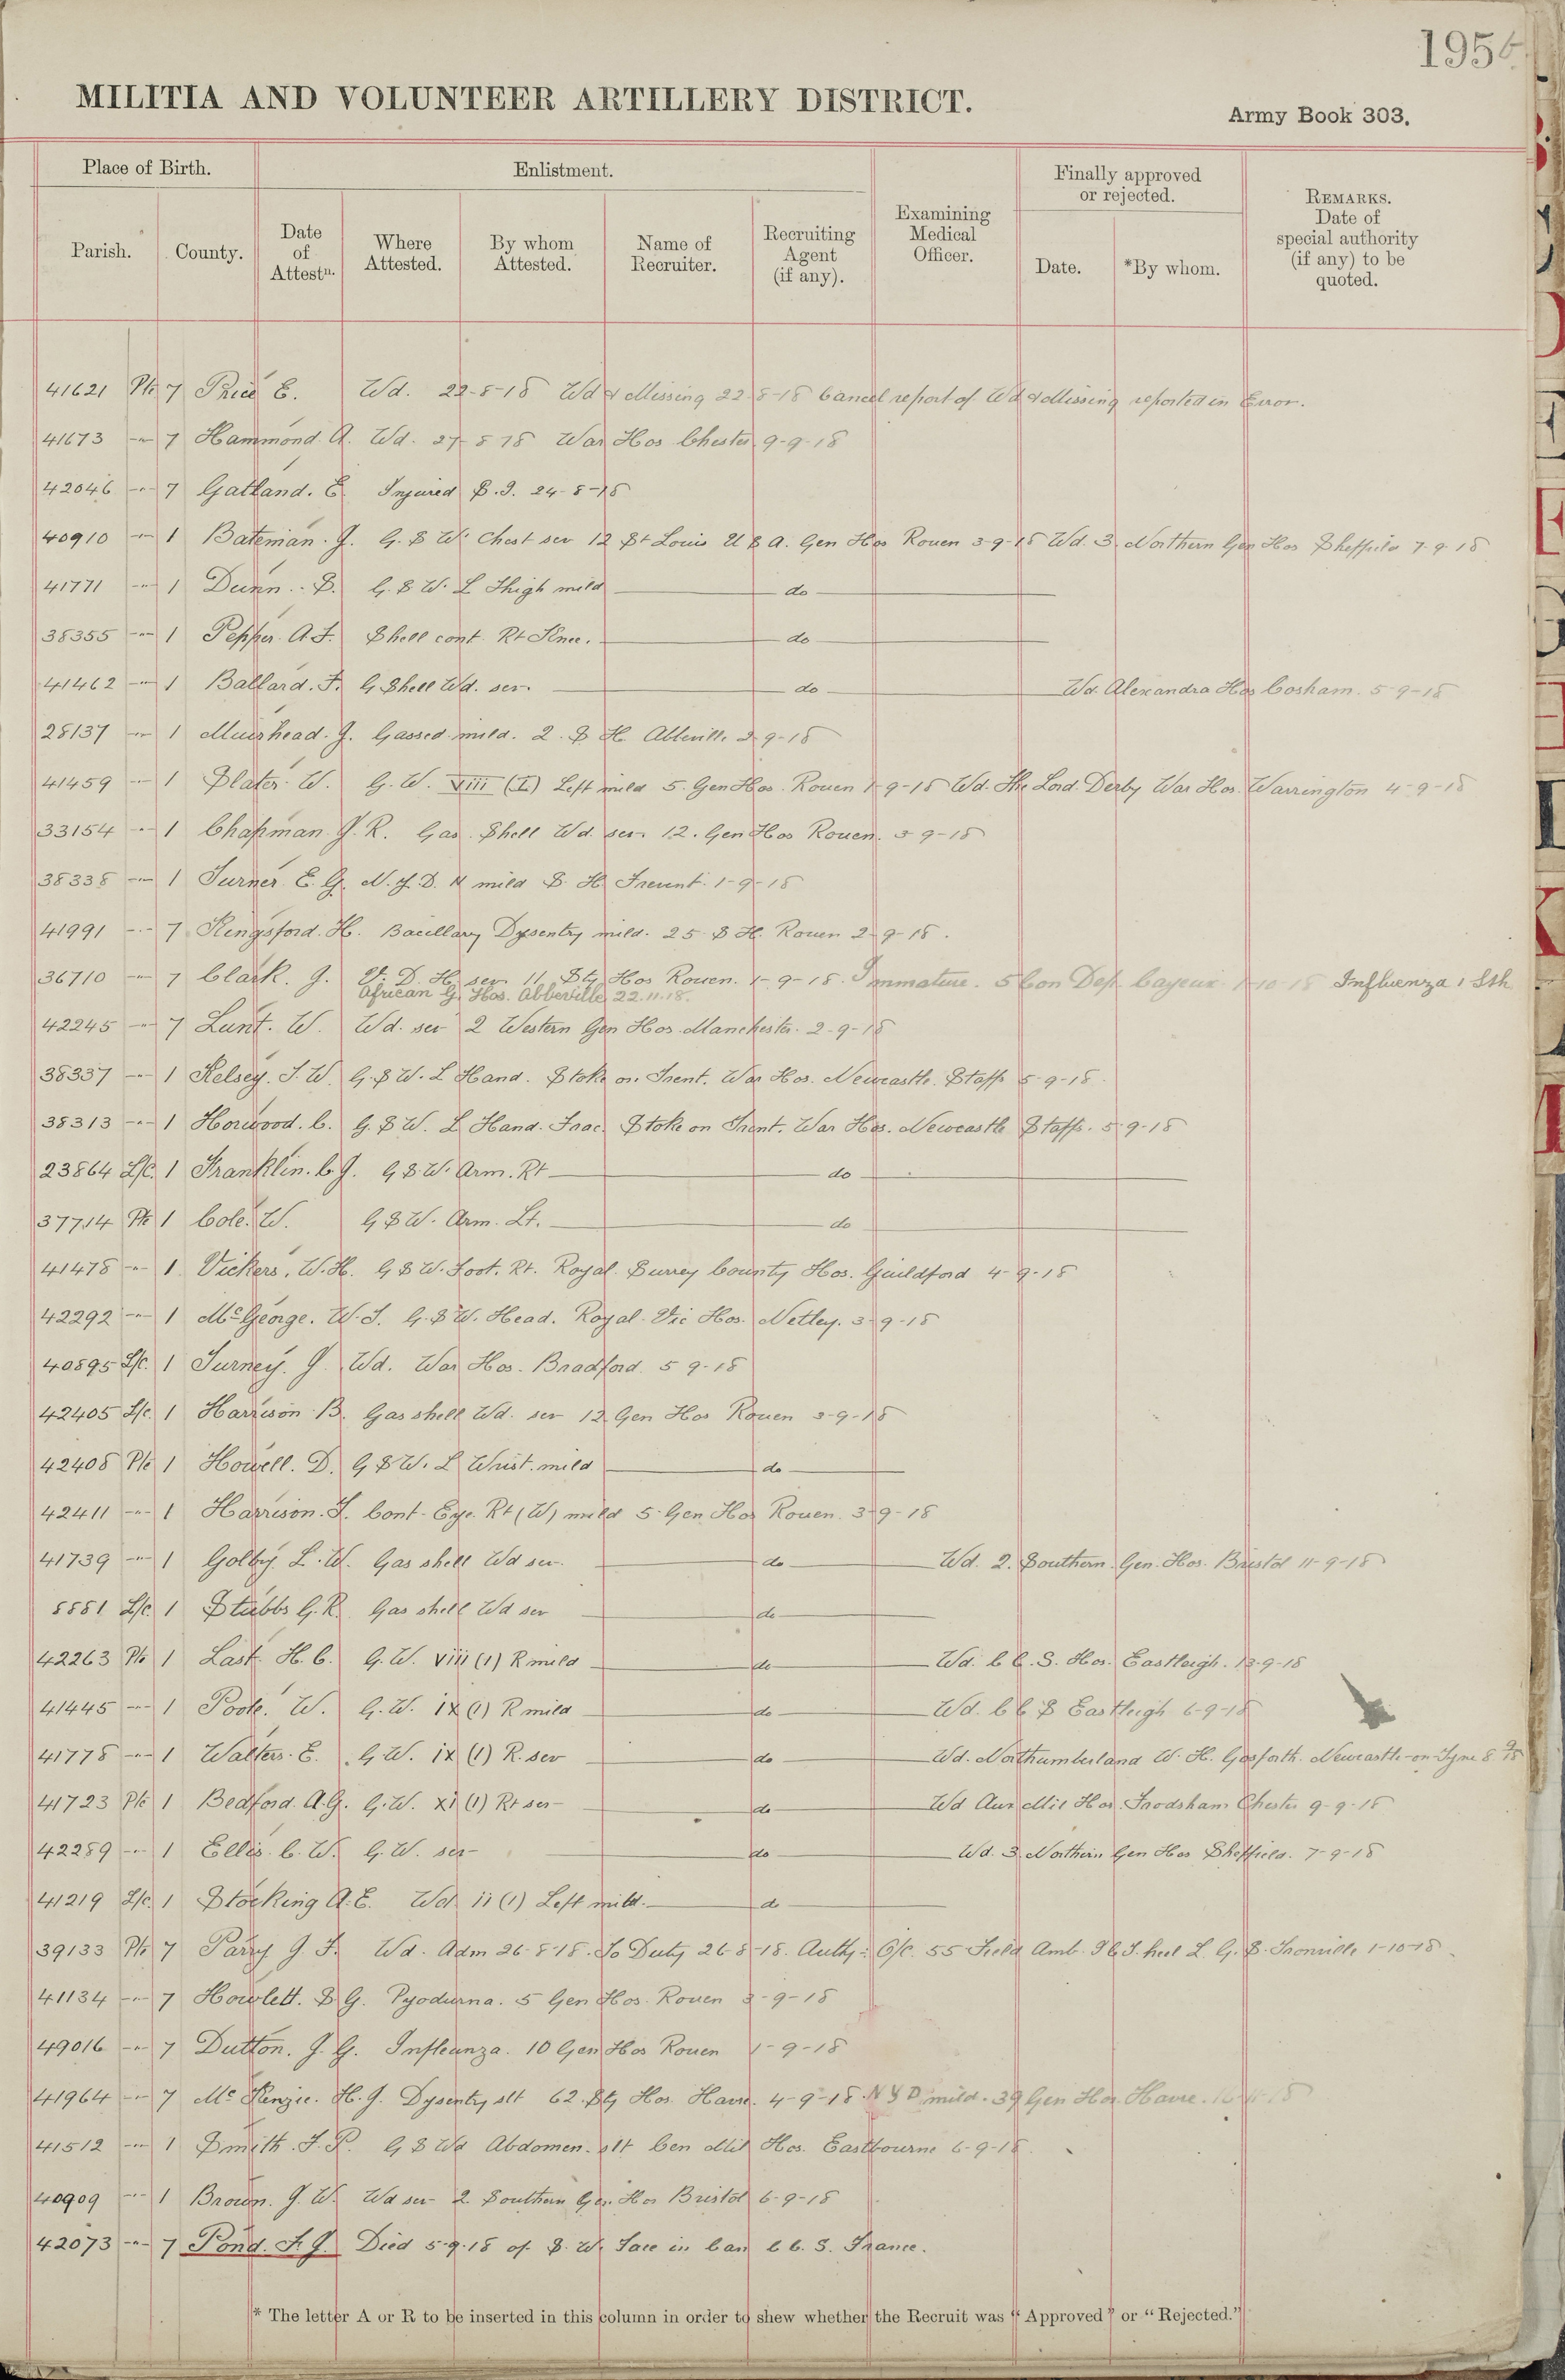 195
MILITIA AND VOLUNTEER ARTILLERY DISTRICT.
Army Book 303.
Place of Birth.
Enlistment.
Examining Medical Officer.
Finally approved or rejected.
REMARKS. Date of special authority (if any) to be quoted.
Parish.
County.
Date of Attestn.
Where Attested.
By whom Attested.
Name of Recruiter.
Recruiting Agent (if any).
Date.
*By whom.
41621 Pte 7 Price E. Wd. 22-8-18 Wd & Missing 22-8-18 Cancel report of Wd & Missing reported in Error.
41673 -"- 7 Hammond. A. Wd. 27-8-18 War Hos Chester 9-9-18
42046 -"- 7 Gatland. E. Injured S.I. 24-8-18
40910 -"- 1 Bateman. J. G.S.W. Chest sev 12 St Louis U S A. Gen Hos Rouen 3-9-18 Wd. 3. Northern Gen Hos Sheffield 7-9-18
41771 -"- 1 Dunn. S. G.S.W. L Thigh mild do
38355 -"- 1 Pepper. A.F. Shell cont. Rt Knee. do
41462 -"- 1 Ballard. F. G Shell Wd. sev. do Wd. Alexandra Hos Cosham. 5-9-18
28137 -"- 1 Muirhead. J. Gassed mild. 2. S H. Abbeville 2-9-18
41459 -"- 1 Slater. W. G.W. VIII (I) Left mild 5. Gen Hos. Rouen 1-9-18 Wd. The Lord Derby War Hos. Warrington 4-9-18
33154 -"- 1 Chapman. J.R. Gas Shell Wd. sev 12. Gen Hos Rouen. 3-9-18
38338 -"- 1 Turner E.G. N.Y.D. N mild S. H. Treport. 1-9-18
41991 -"- 7 Kingsford. H. Bacillary Dysentry mild. 25 S H. Rouen 2-9-18.
36710 -"- 7 Clark. J. V.D.H. sev 11. Sty Hos Rouen. 1-9-18. Immature. 5 Con Dep. Cayeux 1-10-18 Influenza 1 Sth
African G. Hos. Abbeville 22.11.18.
42245 -"- 7 Lunt. W. Wd. sev 2 Western Gen Hos. Manchester. 2-9-18
38337 -"- 1 Kelsey. T.W. G.S.W. L Hand. Stoke on Trent. War Hos. Newcastle. Staffs 5-9-18.
38313 -"- 1 Horwood. C. G.S.W. L Hand. Frac. Stoke on Trent. War Hos. Newcastle Staffs. 5-9-18
23864 L/C. 1 Franklin. C.J. G.S.W. Arm. Rt do
37714 Pte 1 Cole. W. G.S.W. Arm. Lt. do
41478 -"- 1 Vickers. W.H. G.S.W. Foot. Rt. Royal. Surrey County Hos. Guildford 4-9-18
42292 -"- 1 McGeorge. W.J. G.S.W. Head. Royal. Vic Hos. Netley. 3-9-18
40895 L/C. 1 Turney. J. Wd. War Hos. Bradford. 5-9-18
42405 L/C 1 Harrison B. Gas shell Wd. sev 12 Gen Hos Rouen 3-9-18
42408 Pte 1 Howell. D. G.S.W. L Wrist. mild do
42411 -"- 1 Harrison. F. Cont. Eye. Rt (W) mild 5 Gen Hos Rouen. 3-9-18
41739 -"- 1 Golby. L.W. Gas shell Wd sev. do Wd. 2. Southern Gen. Hos. Bristol 11-9-18
8881 L/C 1 Stubbs G.R. Gas shell Wd sev do
42263 Pte 1 Last. H.C. G.W. viii (1) R mild do Wd. C C.S. Hos. Eastleigh. 13-9-18
41445 -"- 1 Poole. W. G.W. ix (1) R mild do Wd. C C S Eastleigh 6-9-18
41778 -"- 1 Walters. E. G.W. ix (1) R. sev do Wd. Northumberland W.H. Gosforth. Newcastle-on-Tyne 8-9-18
41723 Pte 1 Bedford. A.G. G.W. xi (1) Rt sev do Wd Aux Mil Hos. Frodsham Chester 9-9-18
42289 -"- 1 Ellis. C.W. G.W. sev do Wd. 3 Northern Gen Hos Sheffield. 7-9-18
41219 L/C. 1 Stocking A.E. Wd ii (1) Left mild. do
39133 Pte 7 Parry J F. Wd. Adm 26-8-18. To Duty 26-8-18. Auth: O/C. 55 Field Amb. I C T. heel L. G. S. Trouville 1-10-18.
41134 -"- 7 Howlett. S G. Pyodurna. 5 Gen Hos. Rouen 3-9-18
49016 -"- 7 Dutton. J.G. Infleunza. 10 Gen Hos Rouen 1-9-18
41964 -"- 7 McKenzie. H.J. Dysentry slt 62. Sty Hos. Havre. 4-9-18 N Y D mild. 39 Gen Hos. Havre.
41512 -"- 1 Smith. F.P. G S Wd Abdomen. slt Cen Mil Hos. Eastbourne 6-9-18.
40909 -"- 1 Brown. J.W. Wd sev 2. Southern Gen. Hos Bristol 6-9-18
42073 -"- 7 Pond. F.J. Died 5-9-18 of S.W. Face in Can C C.S. France.
* The letter A or R to be inserted in this column in order to shew whether the Recruit was "Approved" or "Rejected."